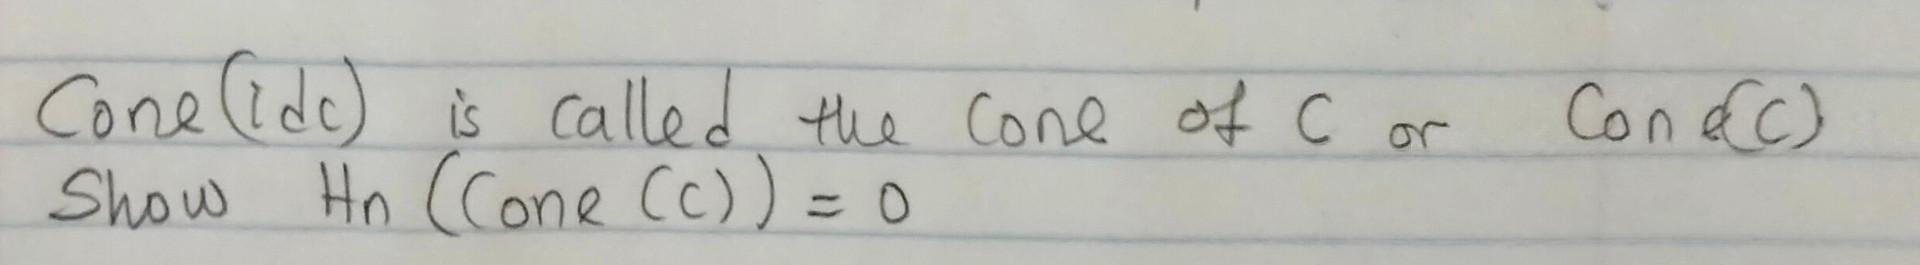 Cone(idc) is called the Cone of C or Cone(C)
Show Hn (Cone (C)) = 0